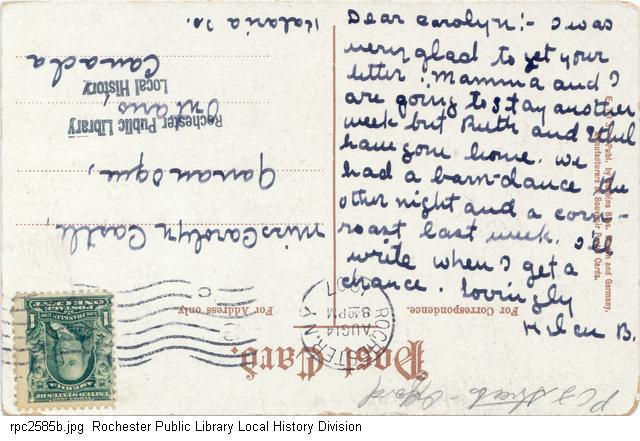 Dear Carolyn:- I was
very glad to get your
letter. Mamma and I
are going to stay another
week but Ruth and Ethel
have gone home. We
had a barn-dance the
other night and a corn-
roast last week. I'll
write when I get a
chance. Lovingly
Helen B.
Miss Carolyn Castle,
Gananoque,
Ontario
Canada
Rochester Public Library
Local History
Post Card.
For Correspondence.
For Address only.
ROCHESTER, N.Y.
AUG 14
8-30PM
1907
ONE CENT
1
AMERICA
Manufacturers & Souvenir Post Cards.
rpc2585b.jpg Rochester Public Library Local History Division